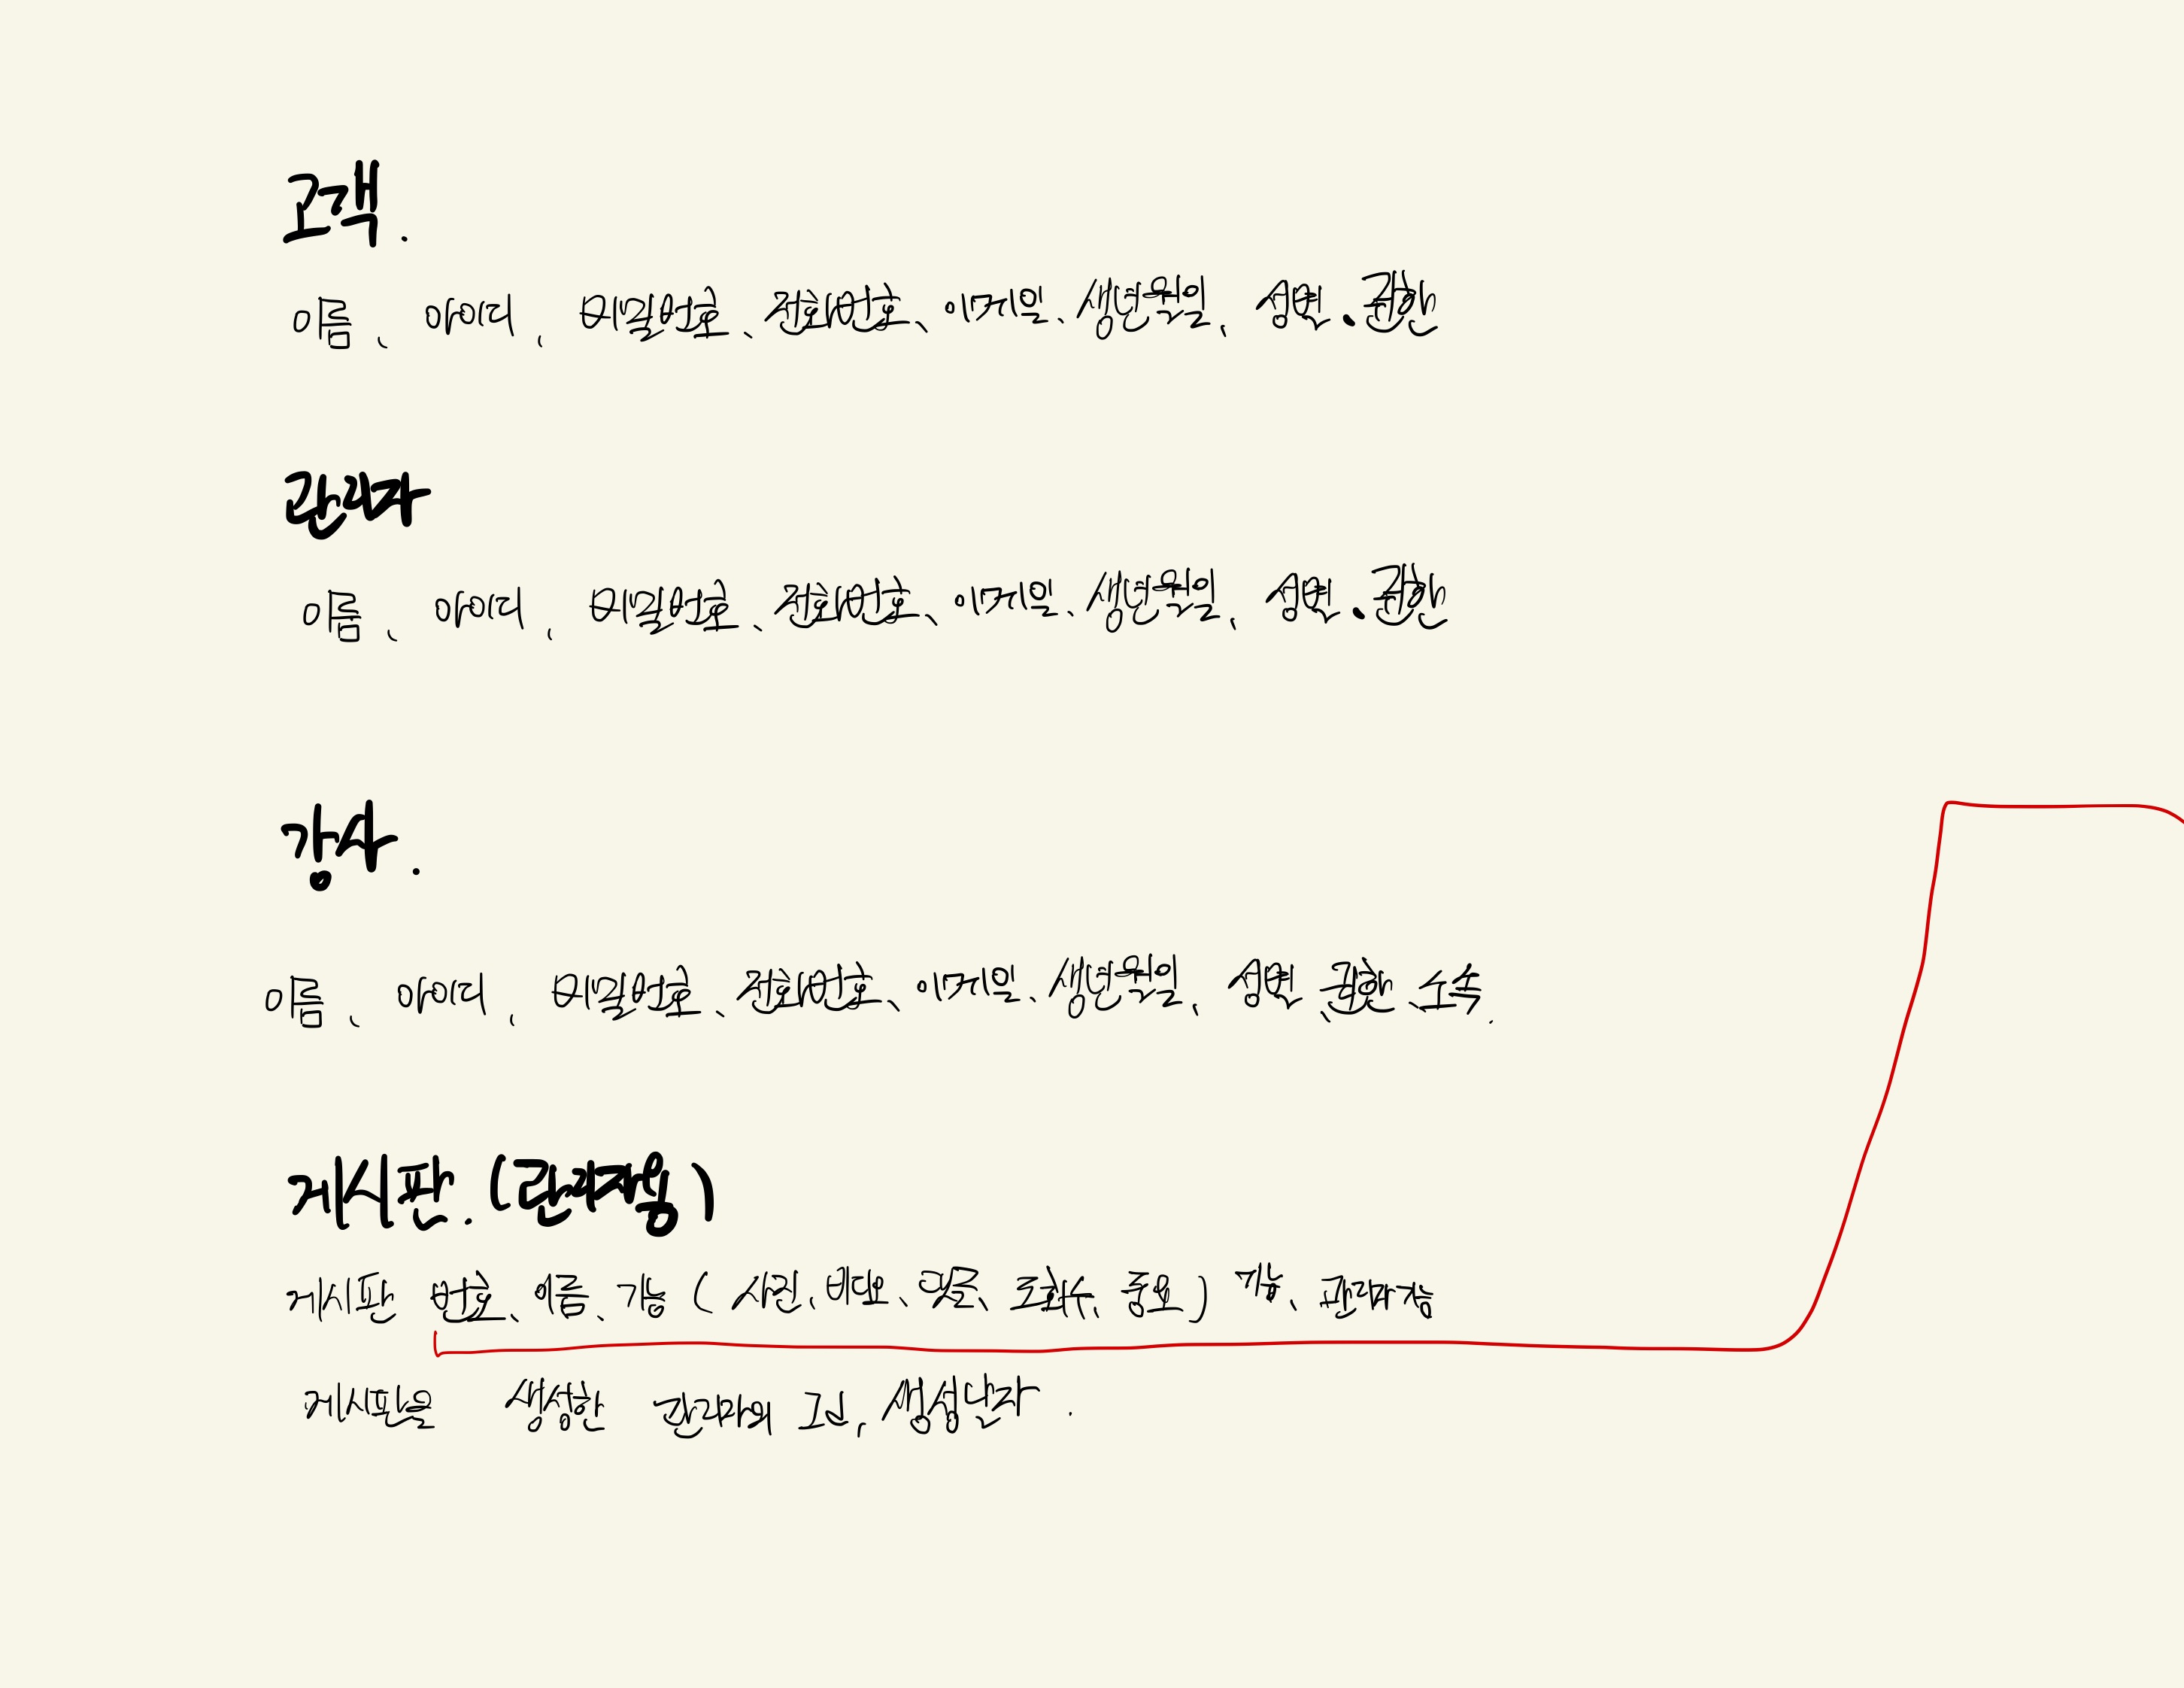 고객.
이름, 아이디, 비밀번호, 전화번호, 이메일, 생년월일, 성별, 권한
관리자
이름, 아이디, 비밀번호, 전화번호, 이메일, 생년월일, 성별, 권한
강사.
이름, 아이디, 비밀번호, 전화번호, 이메일, 생년월일, 성별, 권한, 소속.
게시판. (관리자용)
게시판 번호, 이름, 기능 (사진, 조회수, 좋요)
게시판을 생성한 관리자의 생성날자.